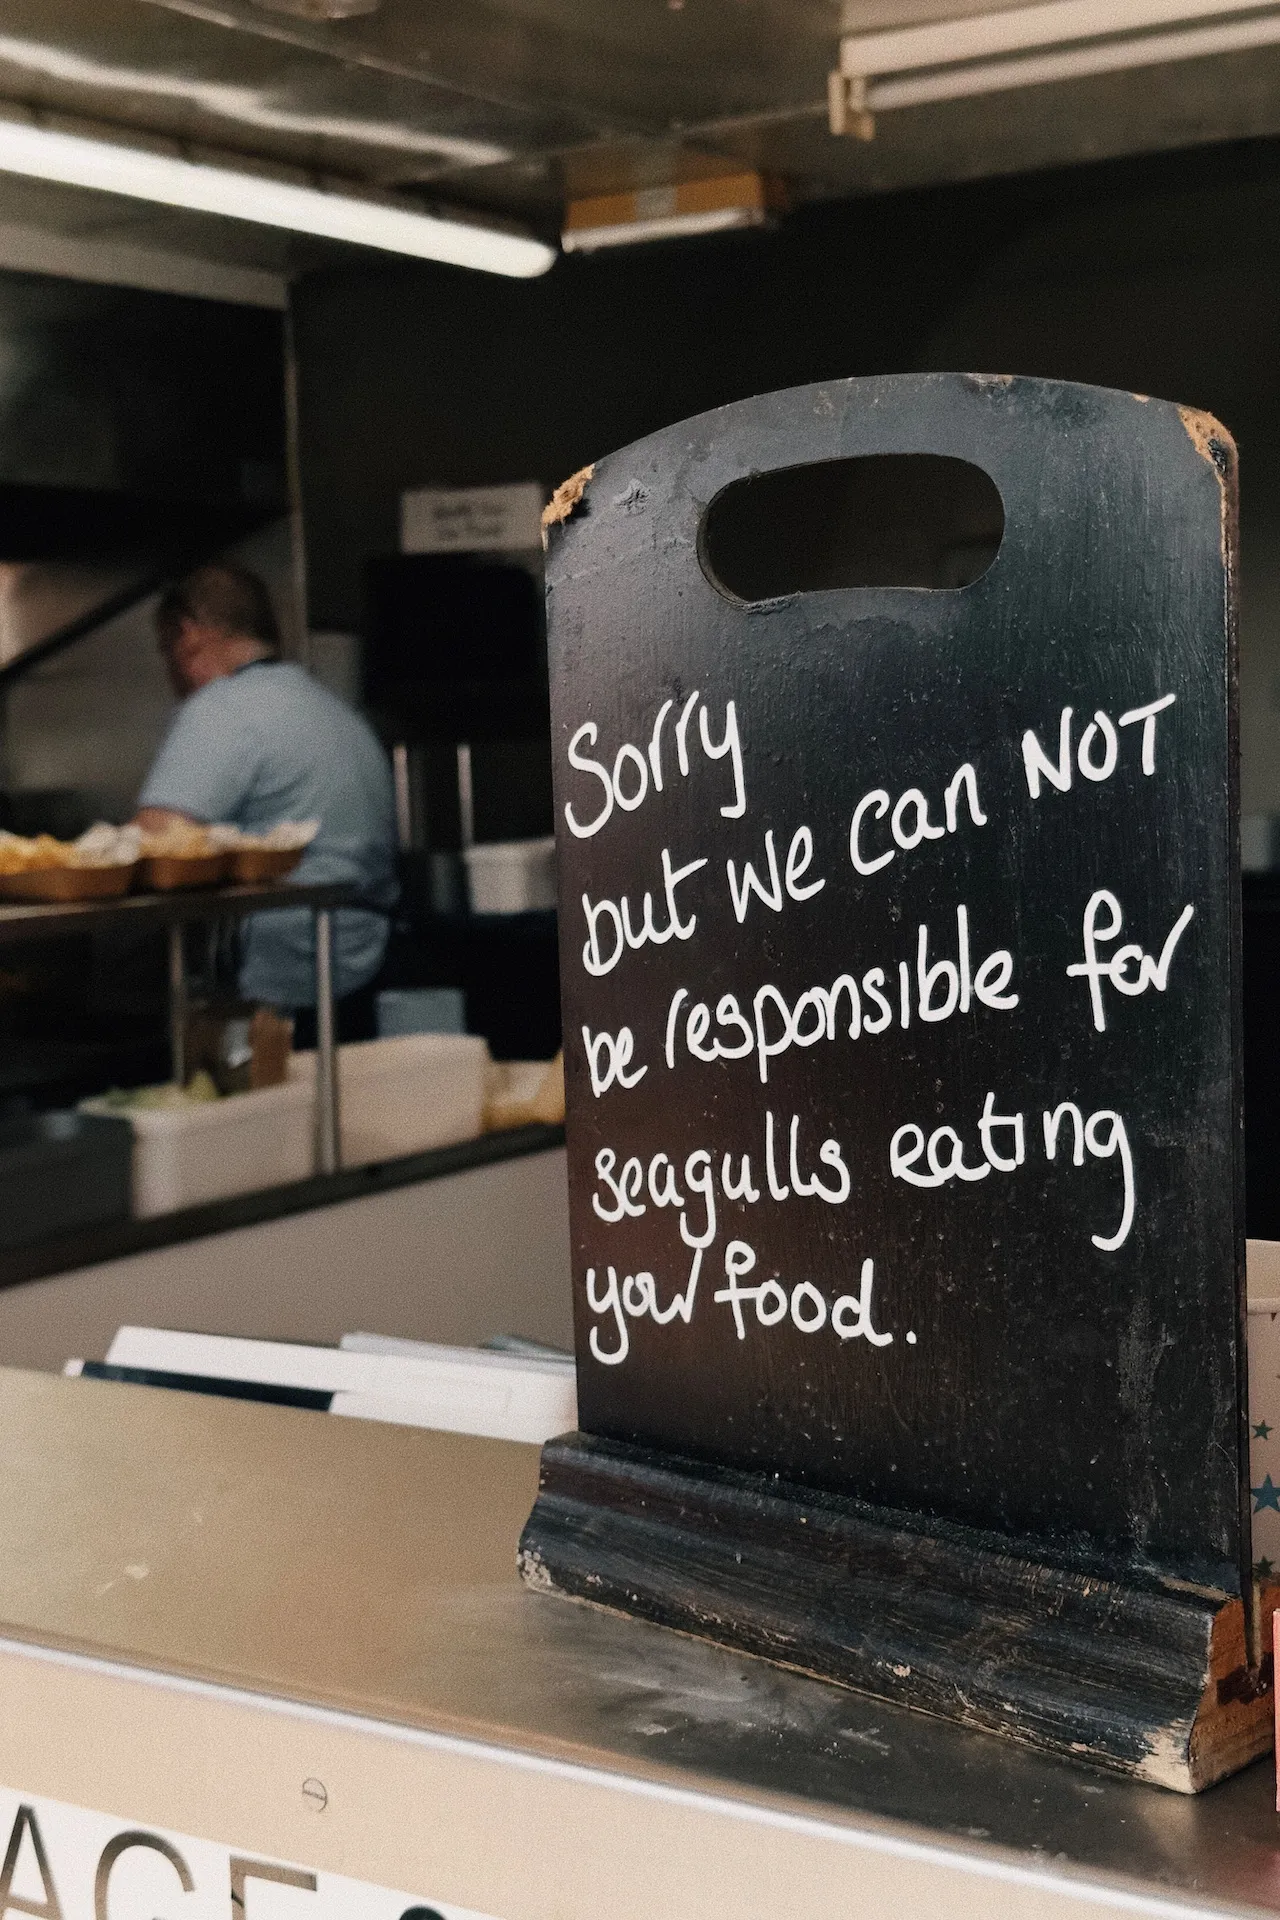 Sorry
but we can NOT
be responsible for
seagulls eating
your food.